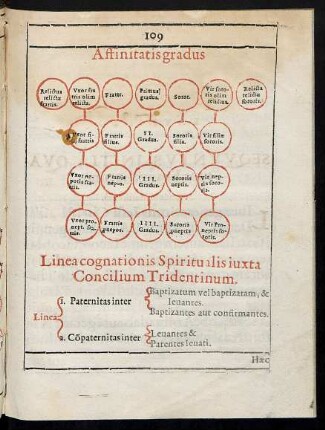 109
Affinitatis gradus
Relictus relictæ fratris. Vxor fratris olim relicta. Frater. Primus gradus. Soror. Vir sororis olim relictus. Relicta relicti sororis.
Vxor filii fratris Fratris filius. II. Gradus. Sororis filia. Vir filiæ sororis.
Vxor nepotis fratris. Fratris nepos. III. Gradus. Sororis neptis. Vir neptis sororis.
Vxor pronept. fratris. Fratris pnepos. IIII. Gradus. Sororis pneptis Vir proneptis sororis.
Linea cognationis Spiritualis iuxta
Concilium Tridentinum.
Linea
1. Paternitas inter
Baptizatum vel baptizatam, &
leuantes.
Baptizantes aut confirmantes.
2. Cōpaternitas inter
Leuantes &
Parentes leuati.
Hæc